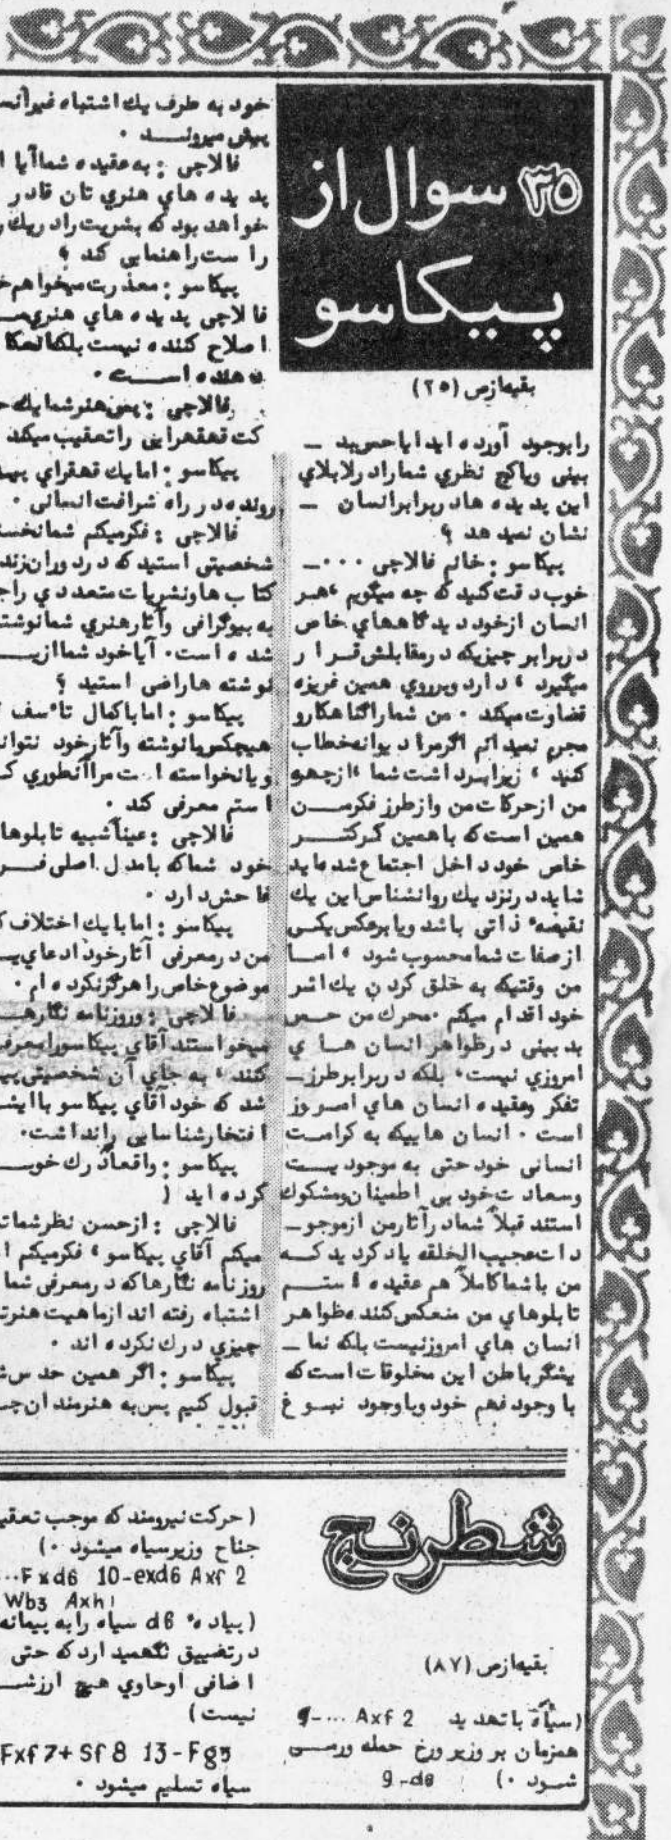 ۳۵ سوال از
پیکاسو
بقیه‌ازص (۲۵)
را بوجود آورده اید ایا حس بد ـ
بینی ویاکج نظری شمارا در لابلای
این پدیده ها در برابر انسان ـ
نشان نمیدهد ؟
پیکاسو : خانم فالاچی ۰۰۰ـ
خوب دقت کنید که چه میگویم ، هر
انسان از خود دیدگاههای خاص
در برابر چیزیکه در مقابلش قرار
میگیرد ، دارد وبرروی همین غریزه
قضاوت میکند ۰ من شما را گناهکار و
مجرم نمیدانم اگر مرا دیوانه خطاب
کنید ، زیرا برداشت شما ، از چهره
من از حرکات من واز طرز فکر مــن
همین است که با همین کرکتــر
خاص خود داخل اجتماع شده اید
شاید در نزد یک روانشناس این یک
نقیصهٔ ذاتی باشد ویا برعکس یکی
از صفات شما محسوب شود ، امــا
من وقتیکه به خلق کردن یک اثر
خود اقدام میکنم ۰ محرک من حــس
بد بینی در ظواهر انسان هـا ی
امروزی نیست ، بلکه در برابر طرز ـ
تفکر وعقیده انسان های امــروز
است ۰ انسان هاییکه به کرامــت
انسانی خود حتی به موجودیــت
وسعادت خود بی اطمینان ومشکوک
استند قبلاً شما در آثار من از موجو ـ
دات عجیب الخلقه یاد کردید کــه
من با شما کاملاً هم عقیده استــم
تابلوهای من منعکس کننده ظواهر
انسان های امروز نیست بلکه نما ـ
یشگر باطن این مخلوقات است که
با وجود فهم خود وباوجود نبــوغ
خود به طرف یک اشتباه غیرانس
پیش میروند ۰
فالاچی : به عقیده شما آیا ا
پدیده های هنری تان قادر
خواهد بود که بشریت را در یک ر
راست راهنمایی کند ؟
پیکاسو : معذرت میخواهم خ
فالاچی پدیده های هنری مــ
اصلاح کننده نیست بلکه انعکا
دهنده اســت ۰
فالاچی : یعنی هنر شما یک ح
کت قهقهرایی را تعقیب میکند
پیکاسو : اما یک قهقرای پیــ
رونده در راه شرافت انسانی ۰
فالاچی : فکر میکنم شما نخست
شخصیتی استید که در دوران زند
کتاب ها ونشریات متعددی راج
به بیوگرافی وآثار هنری شما نوشت
شده است ۰ آیا خود شما از یــ
نوشته ها راضی استید ؟
پیکاسو : اما باکمال تأسف
هیچکس یا نوشته وآثار خود نتوان
ویا نخواسته است مرا آنطوری کـ
استم معرفی کند ۰
فالاچی : عیناً شبیه تابلوها
خود شما که با مدل اصلی فــر
فاحش دارد ۰
پیکاسو : اما با یک اختلاف ک
من در معرفی آثار خود ادعای یــ
موضوع خاص را هرگز نکرده ام ۰
فالاچی : وروزنامه نگارهــ
میخواستند آقای پیکاسو را معرف
کنند ، به جای آن شخصیتی پی
شد که خود آقای پیکاسو با ایشــ
افتخار شناسایی را نداشت ۰
پیکاسو : واقعاً درک خوبــ
کرده اید !
فالاچی : از حسن نظر شما ت
میکنم آقای پیکاسو ، فکر میکنم ا
روزنامه نگارها که در معرفی شما
اشتباه رفته اند از ماهیت هنرت
چیزی درک نکرده اند ۰
پیکاسو : اگر همین حدس ش
قبول کنیم پس به هنرمندان چــ
شطرنج
بقیه‌ازص (۸۷)
9-... Axf 2 (سیاه با تهدید
همزمان بر وزیر ورخ حمله ورمــی
شــود ۰) 9-d8
(حرکت نیرومند که موجب تعقی
جناح وزیر سیاه میشود ۰)
...Fxd6 10-exd6 Axf 2
Wb3 Axh1
(پیادهٔ d6 سیاه را به پیمانه
در تضییق نگهمیدارد که حتی
اضافی او حاوی هیچ ارزشــ
نیست)
Fxf7+ Sf8 13-Fg5
سیاه تسلیم میشود ۰